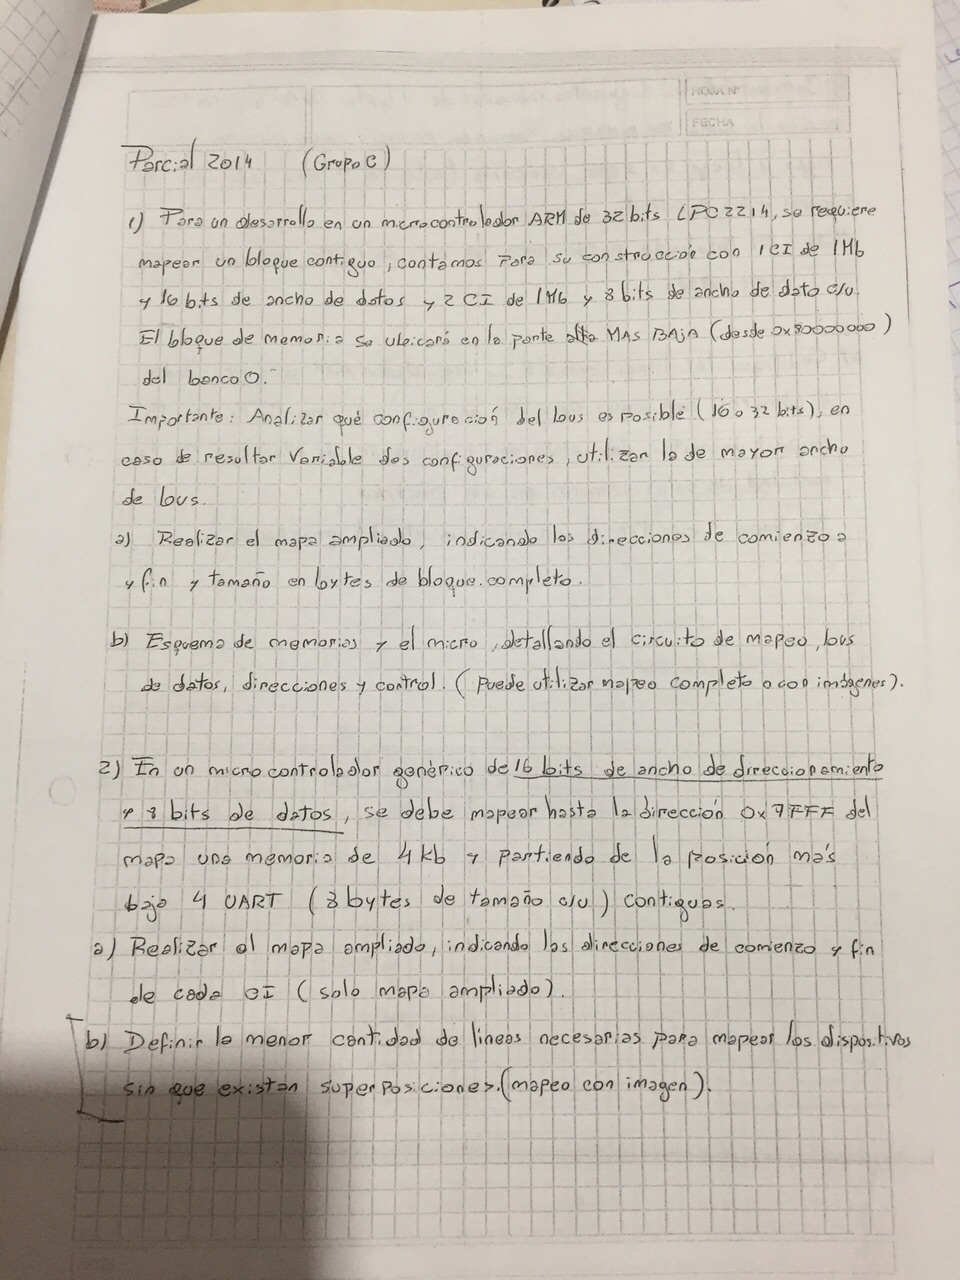 HOJA Nº
FECHA
Parcial 2014 (Grupo C)
1) Para un desarrollo en un microcontrolador ARM de 32 bits LPC2214, se requiere
mapear un bloque contiguo, contamos para su construcción con 1 CI de 1Mb
y 16 bits de ancho de datos y 2 CI de 1Mb y 8 bits de ancho de dato c/u.
El bloque de memoria se ubicará en la parte alta MAS BAJA (desde 0x80000000)
del banco 0.-
Importante: Analizar qué configuración del bus es posible (16 o 32 bits), en
caso de resultar variable dos configuraciones, utilizar la de mayor ancho
de bus.
a) Realizar el mapa ampliado, indicando las direcciones de comienzo a
y fin y tamaño en bytes de bloque completo.
b) Esquema de memorias y el micro, detallando el circuito de mapeo, bus
de datos, direcciones y control. (Puede utilizar mapeo completo o con imágenes).
2) En un microcontrolador genérico de 16 bits de ancho de direccionamiento
y 8 bits de datos, se debe mapear hasta la dirección 0x7FFF del
mapa una memoria de 4kb y partiendo de la posición más
baja 4 UART (8 bytes de tamaño c/u) contiguas.
a) Realizar el mapa ampliado, indicando las direcciones de comienzo y fin
de cada CI (solo mapa ampliado).
b) Definir la menor cantidad de líneas necesarias para mapear los dispositivos
sin que existan superposiciones. (mapeo con imagen).